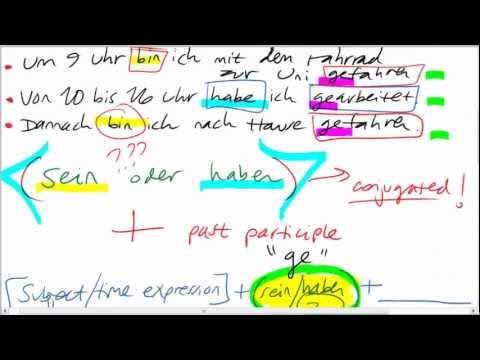 • Um 9 Uhr bin ich mit dem Fahrrad
zur Uni gefahren
• Von 10 bis 16 Uhr habe ich gearbeitet
• Danach bin ich nach Hause gefahren.
???
(sein oder haben) → conjugated!
+ past participle
"ge"
[Subject/time expression] + sein/haben + ________